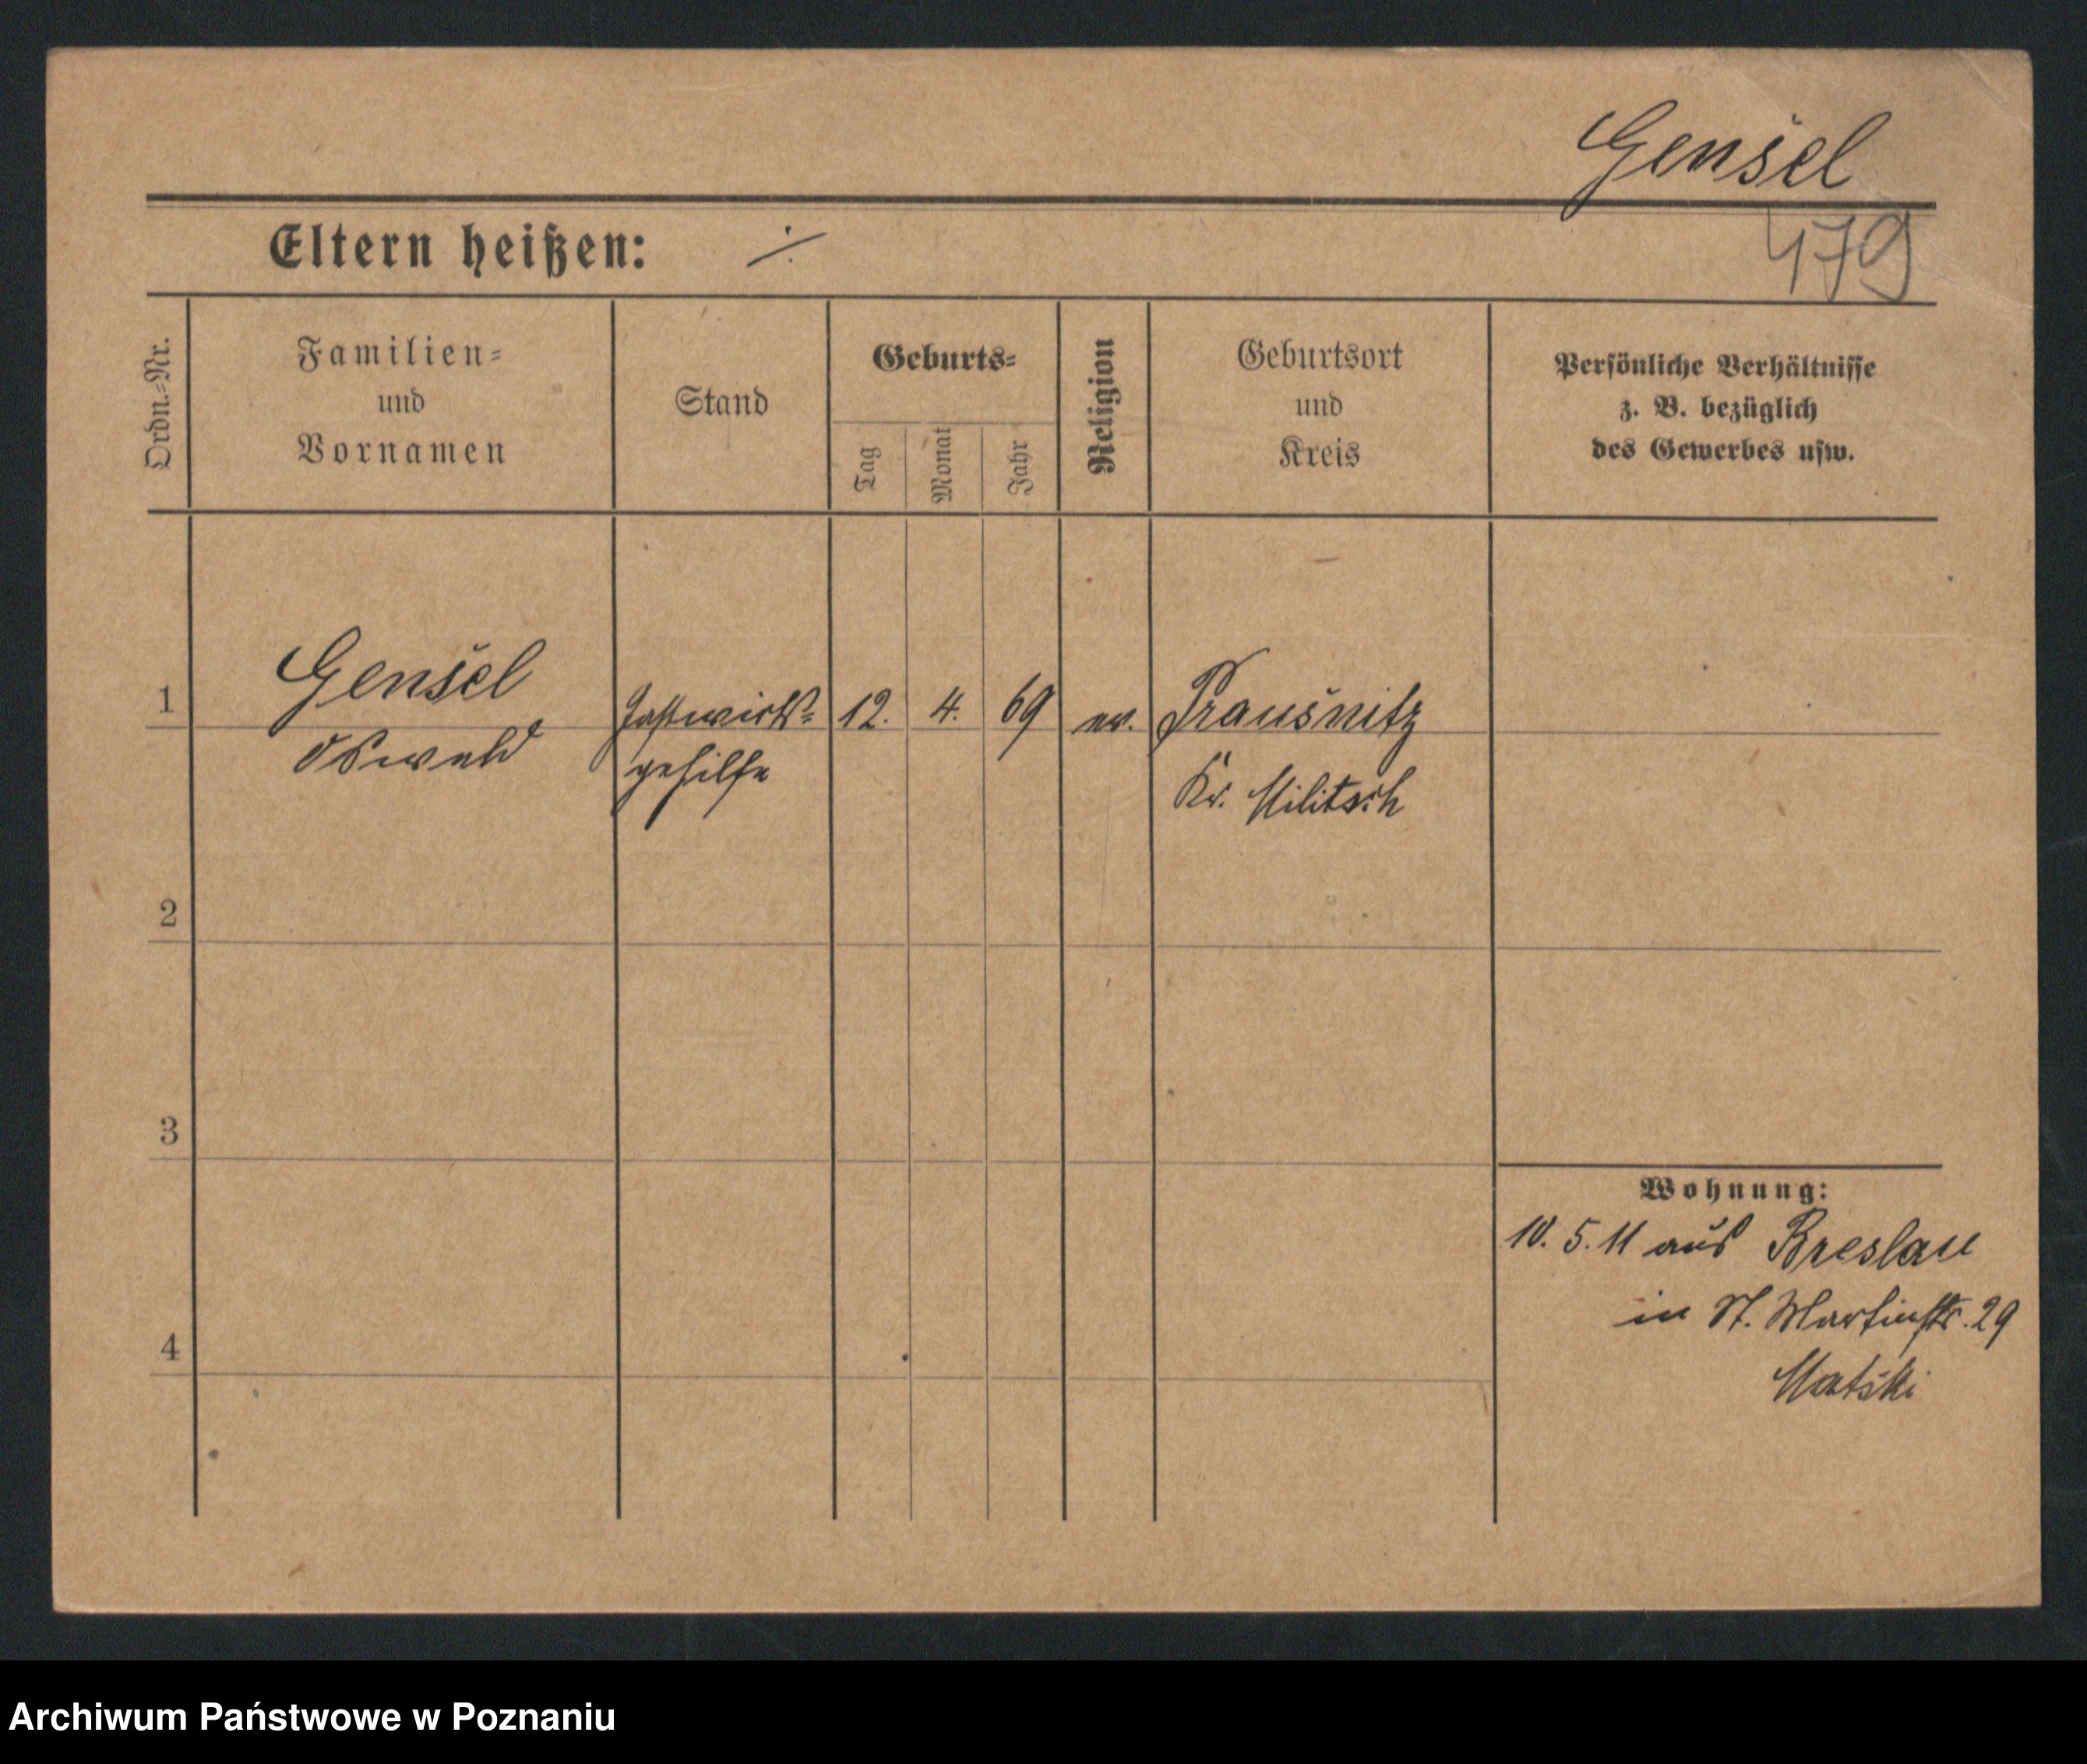 Gensel
479
Eltern heißen: ⁒
Ordn.-Nr.
Familien-
und
Vornamen
Stand
Geburts-
Tag
Monat
Jahr
Religion
Geburtsort
und
Kreis
Persönliche Verhältnisse
z. B. bezüglich
des Gewerbes usw.
1
Gensel
Oswald
Gastwirts-
gehilfe
12.
4.
69
ev.
Prausnitz
Kr. Militsch
2
3
4
Wohnung:
10. 5. 11 aus Breslau
in St. Martinstr. 29
Matski
Archiwum Państwowe w Poznaniu